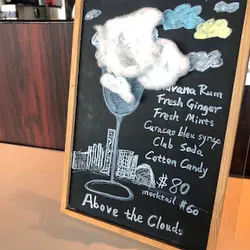 Havana Rum
Fresh Ginger
Fresh Mints
Curacao bleu syrup
Club Soda
Cotton Candy
$80
mocktail $60
Above the Clouds